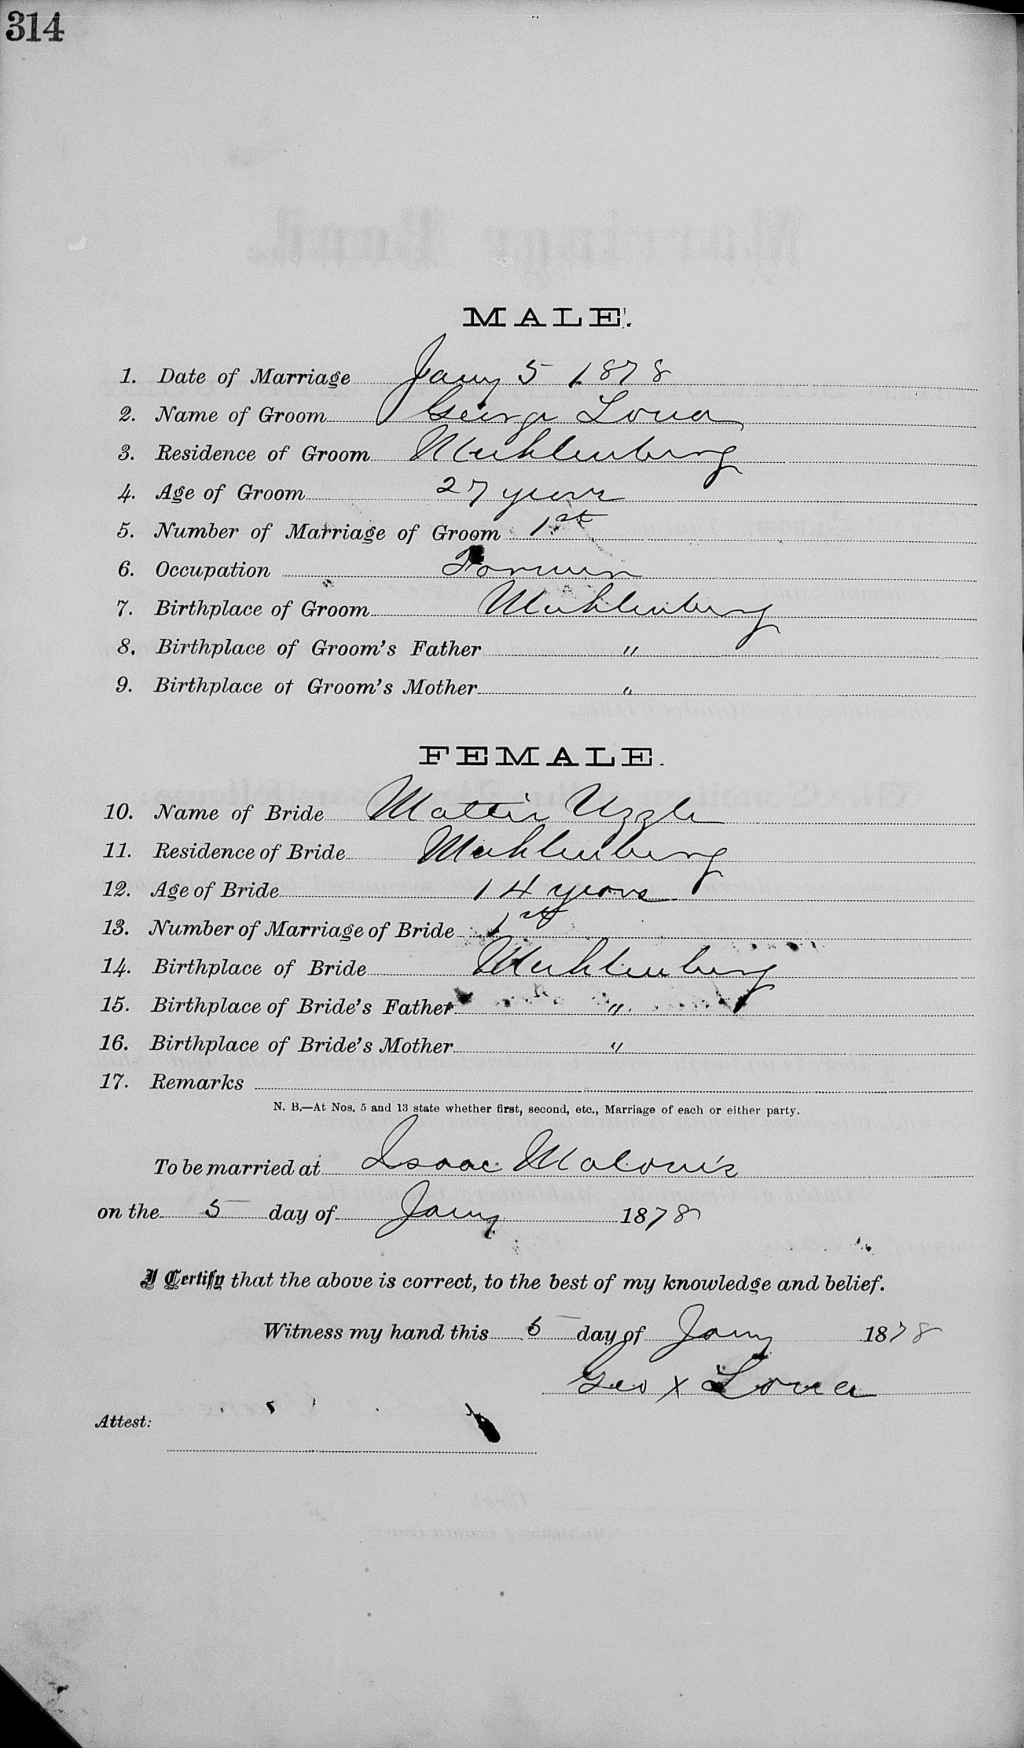 314
MALE.
1. Date of Marriage Jany 5 1878
2. Name of Groom George Lova
3. Residence of Groom Muhlenberg
4. Age of Groom 27 years
5. Number of Marriage of Groom 1st
6. Occupation Farmer
7. Birthplace of Groom Muhlenberg
8. Birthplace of Groom's Father "
9. Birthplace of Groom's Mother "
FEMALE.
10. Name of Bride Mattie Uzzle
11. Residence of Bride Muhlenberg
12. Age of Bride 14 years
13. Number of Marriage of Bride 1st
14. Birthplace of Bride Muhlenberg
15. Birthplace of Bride's Father "
16. Birthplace of Bride's Mother "
17. Remarks
N. B.—At Nos. 5 and 13 state whether first, second, etc., Marriage of each or either party.
To be married at Isaac Malone's
on the 5 day of Jany 1878
I Certify that the above is correct, to the best of my knowledge and belief.
Witness my hand this 5 day of Jany 1878
Geo X Lova
Attest: